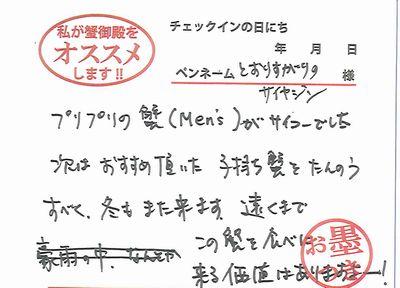 私が蟹御殿を
オススメ
します!!
チェックインの日にち
年 月 日
ペンネーム とおりすがりの 様
サイヤジン
プリプリの 蟹(Men's)が サイコーでした
次は おすすめ頂いた 子持ち蟹を たんのう
すべく、冬も また来ます 遠くまで
豪雨の中、
この蟹を食べに
来る価値はありますよー!
お墨